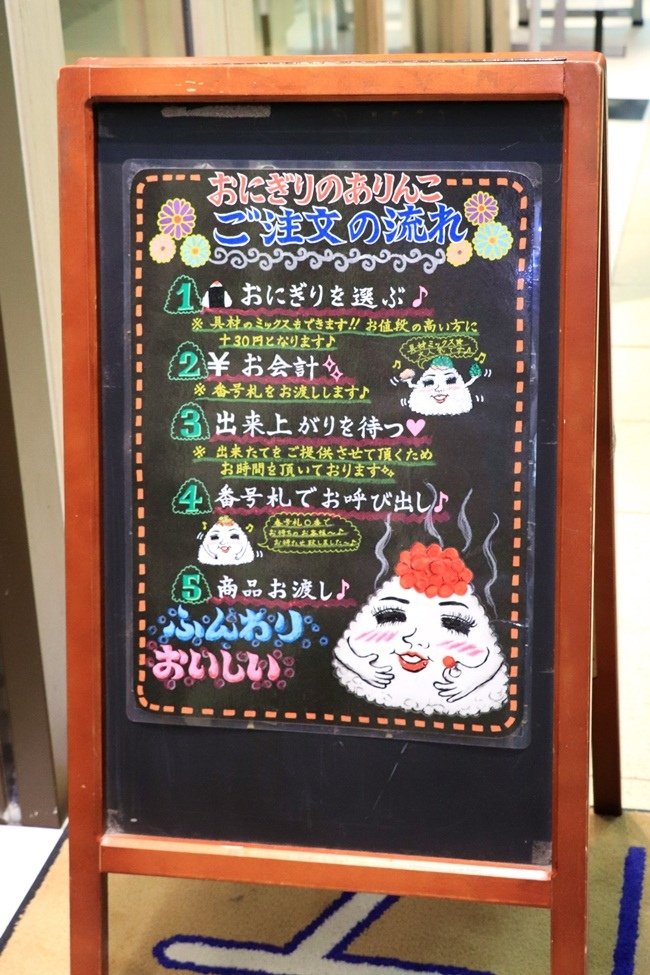 おにぎりのありんこ
ご注文の流れ
1 おにぎりを選ぶ♪
※ 具材のミックスもできます!! お値段の高い方に
+30円となります♪
2 ¥ お会計
※ 番号札をお渡しします♪
3 出来上がりを待つ♥
※ 出来たてをご提供させて頂くため
お時間を頂いております
4 番号札でお呼び出し♪
番号札〇番で
お待ちのお客様〜♪
お待たせ致しました〜♪
5 商品お渡し♪
ふんわり
おいしい